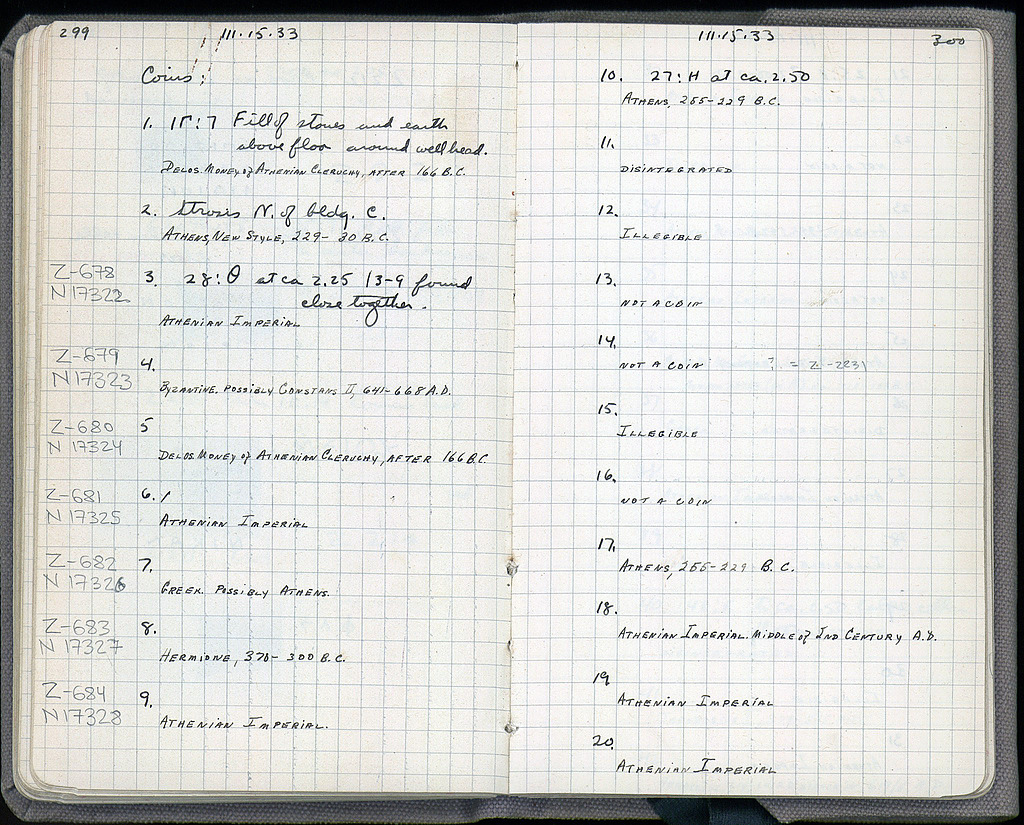 299
III·15·33
Coins:
1. 15:7 Fill of stones and earth
above floor around wellhead.
DELOS. MONEY of ATHENIAN CLERUCHY, AFTER 166 B.C.
2. Strosis N. of bldg. C.
ATHENS, NEW STYLE, 229-30 B.C.
Z-678
N17322
3. 28:Θ at ca 2.25 / 3-9 found
close together.
ATHENIAN IMPERIAL
Z-679
N17323
4.
BYZANTINE. POSSIBLY CONSTANS II, 641-668 A.D.
Z-680
N 17324
5
DELOS. MONEY of ATHENIAN CLERUCHY, AFTER 166 B.C.
Z-681
N 17325
6. /
ATHENIAN IMPERIAL
Z-682
N 17326
7.
GREEK. POSSIBLY ATHENS.
Z-683
N 17327
8.
HERMIONE, 370-300 B.C.
Z-684
N17328
9.
ATHENIAN IMPERIAL.
III·15·33
300
10. 27:H at ca. 2.50
ATHENS, 255-229 B.C.
11.
DISINTEGRATED
12.
ILLEGIBLE
13.
NOT A COIN
14.
NOT A COIN ? = Z-2231
15.
ILLEGIBLE
16.
NOT A COIN
17.
ATHENS, 255-229 B.C.
18.
ATHENIAN IMPERIAL. MIDDLE of 2ND CENTURY A.D.
19
ATHENIAN IMPERIAL
20.
ATHENIAN IMPERIAL